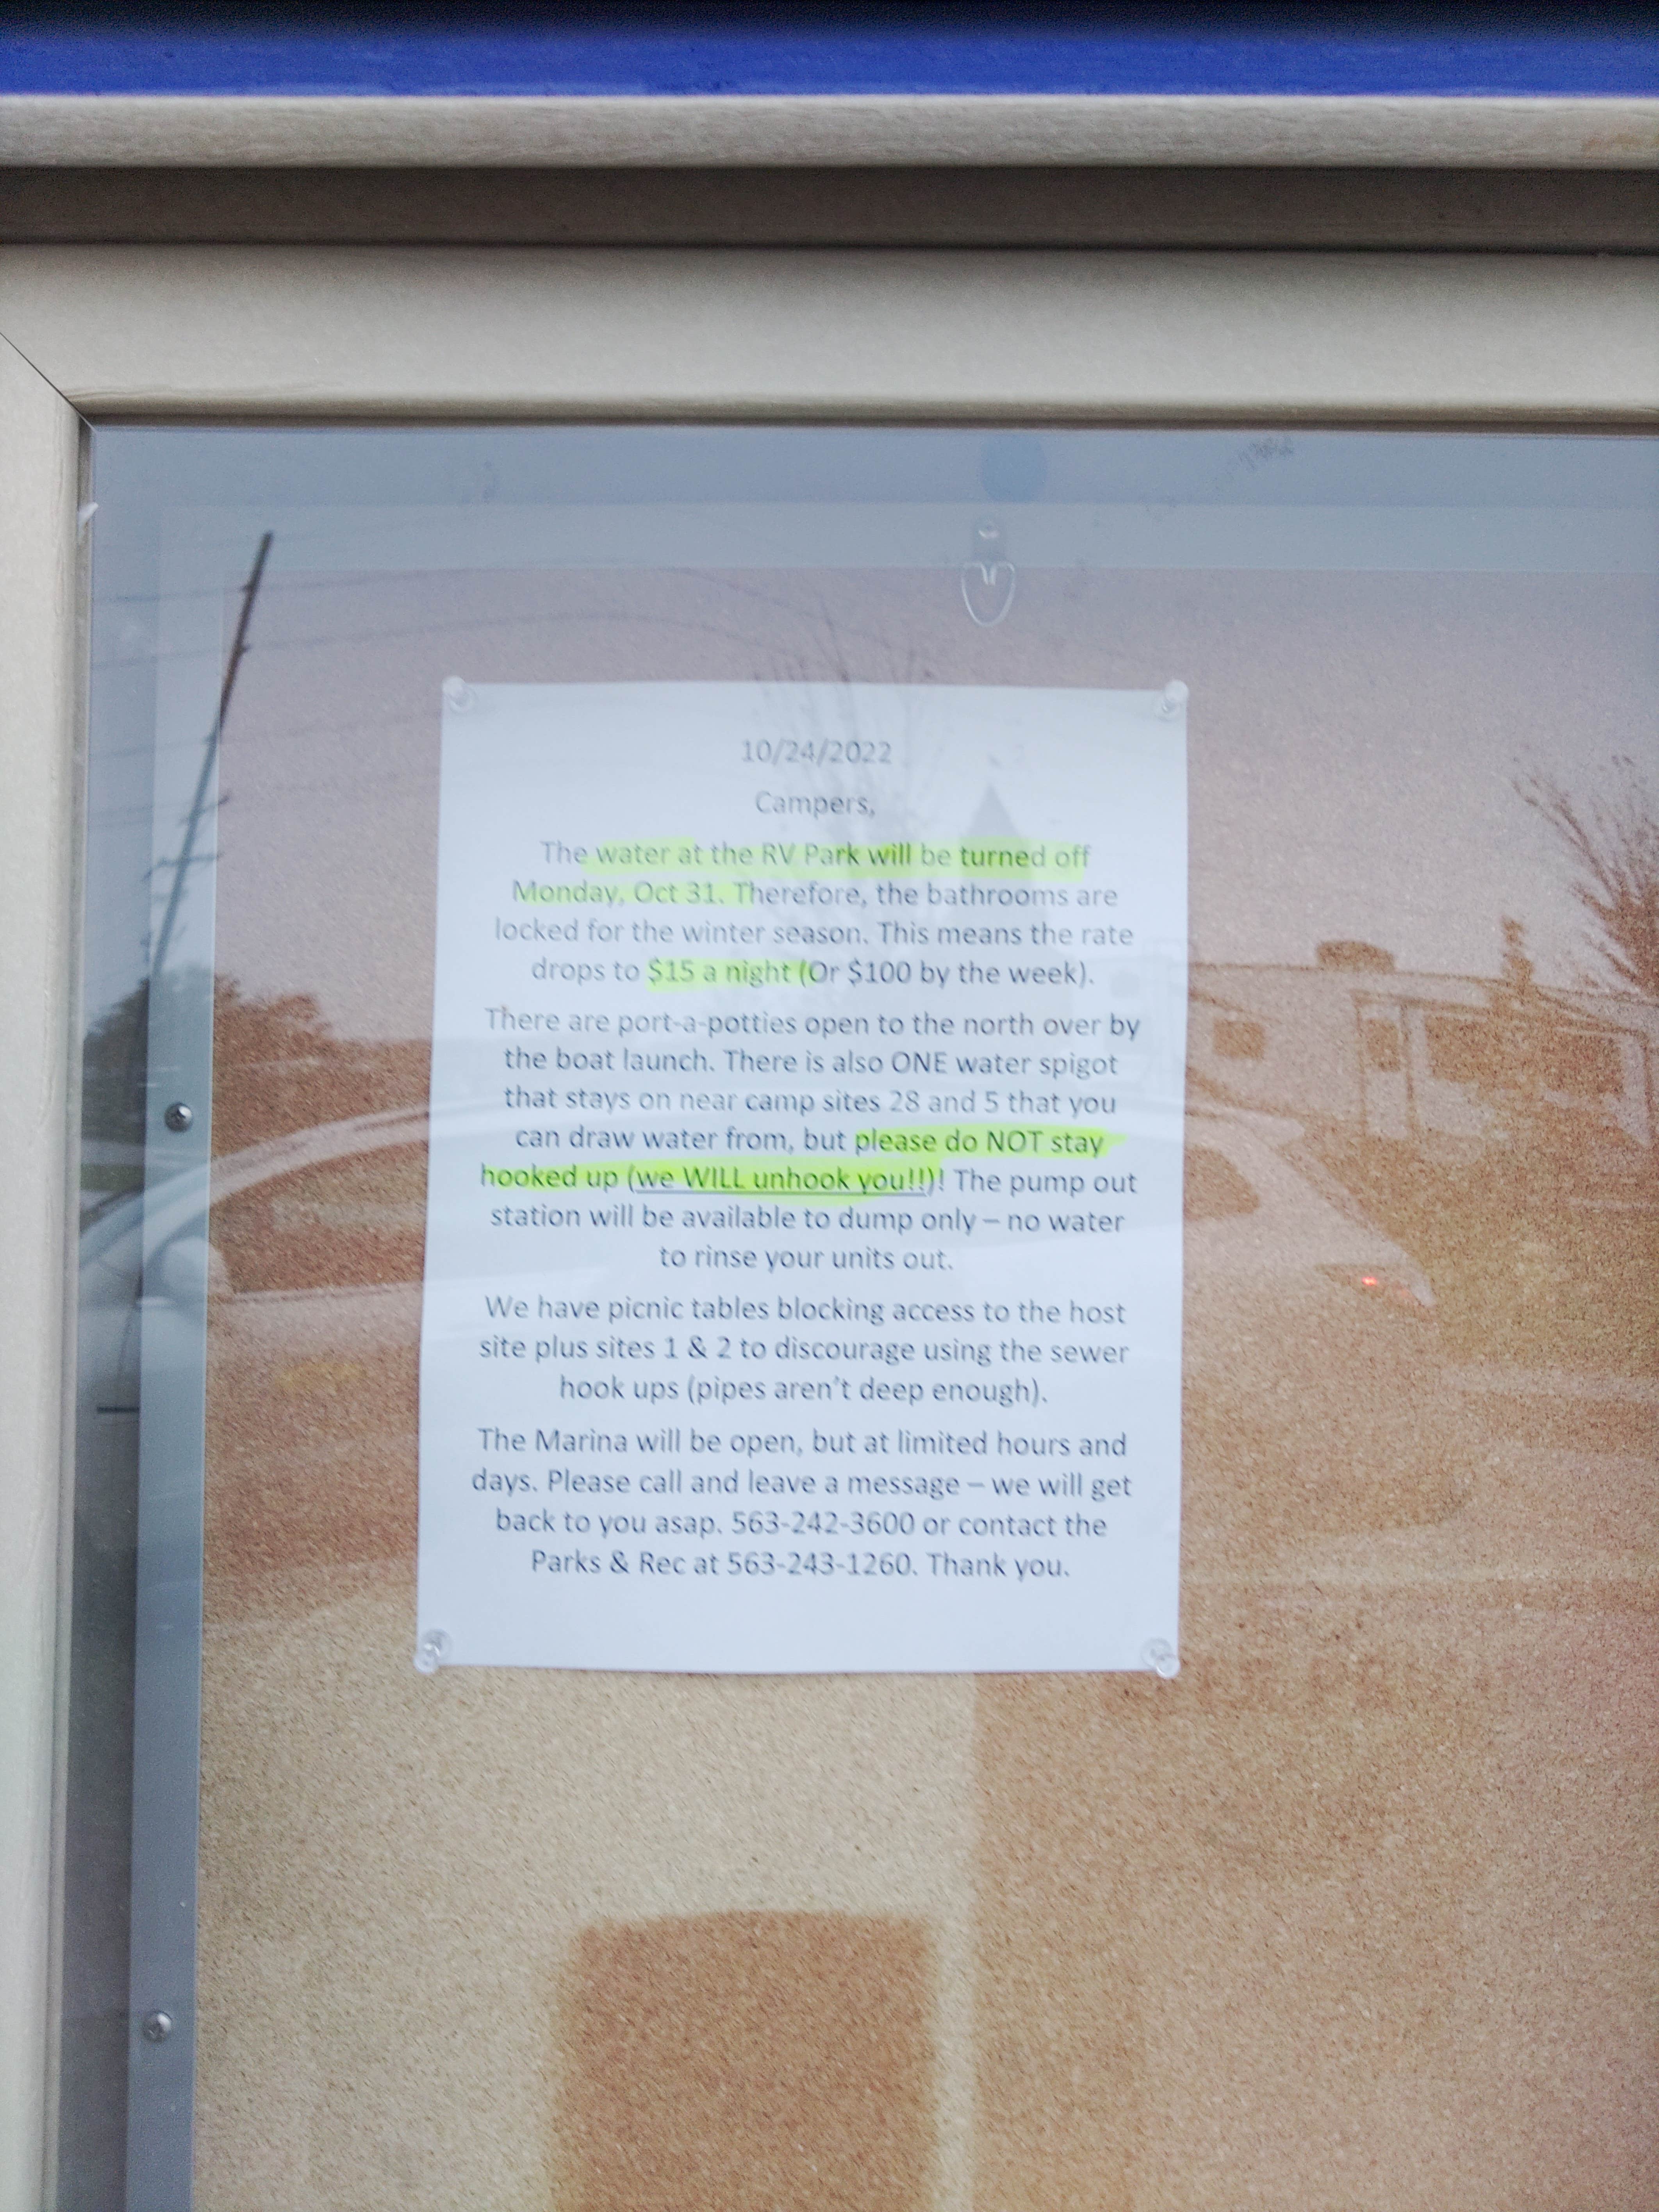 10/24/2022
Campers,
The water at the RV Park will be turned off
Monday, Oct 31. Therefore, the bathrooms are
locked for the winter season. This means the rate
drops to $15 a night (Or $100 by the week).
There are port-a-potties open to the north over by
the boat launch. There is also ONE water spigot
that stays on near camp sites 28 and 5 that you
can draw water from, but please do NOT stay
hooked up (we WILL unhook you!!)! The pump out
station will be available to dump only – no water
to rinse your units out.
We have picnic tables blocking access to the host
site plus sites 1 & 2 to discourage using the sewer
hook ups (pipes aren't deep enough).
The Marina will be open, but at limited hours and
days. Please call and leave a message – we will get
back to you asap. 563-242-3600 or contact the
Parks & Rec at 563-243-1260. Thank you.